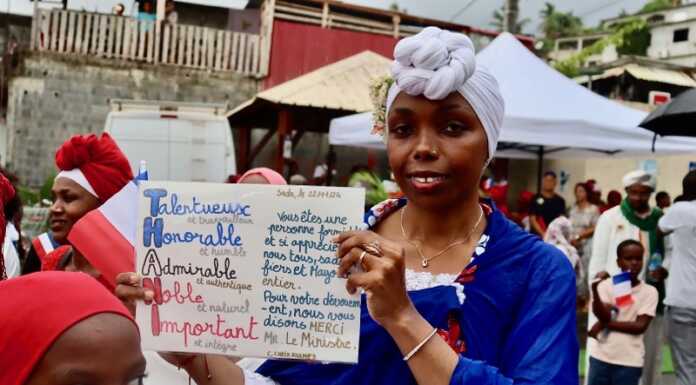 Sada, le 22.04.2024
Talentueux
et travailleur
Honorable
et humble
Admirable
et authentique
Noble
et naturel
Important
et intègre
Vous êtes une
personne
et si appréci
nous tous,
fiers et Maho
entier.
Pour votre dévouem
-ent, nous vous
disons MERCI
Mr. Le Ministre.